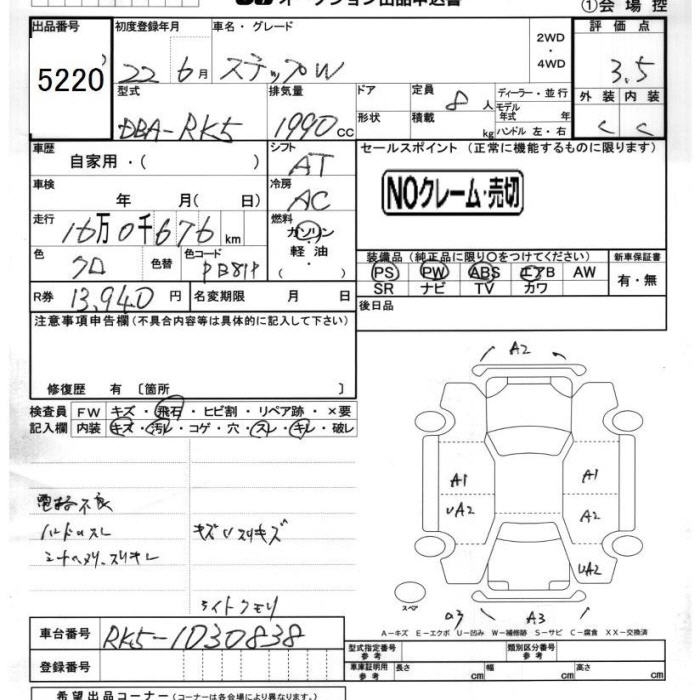 オークション出品申込書
①会場控
出品番号 初度登録年月 車名・グレード 2WD・4WD 評価点
5220 22 6月 ステップW 3.5
型式 排気量 ドア 定員 8人 ディーラー・並行 外装 内装
DBA-RK5 1990cc 形状 積載 kg モデル年式 年 ハンドル 左・右 C C
車歴 自家用・( ) シフト AT セールスポイント (正常に機能するものに限ります)
車検 年 月(日) 冷房 AC NOクレーム・売切
走行 16万0千676km 燃料 ガソリン・軽油・( )
色 クロ 色替 色コード 装備品 (純正品に限り○をつけてください) 新車保証書
PS PW ABS エアB AW 有・無
SR ナビ TV カワ
R券 13,940円 名変期限 月 日 後日品
注意事項申告欄 (不具合内容等は具体的に記入して下さい)
修復歴 有 〔箇所 〕
検査員 FW キズ・飛石・ヒビ割・リペア跡・×要
記入欄 内装 キズ・汚レ・コゲ・穴・スレ・キレ・破レ
A2
A1 A1
UA2 A2
UA2
電格不良
ハンドルスレ
キズUスリキズ
ライトクモリ
スペア
A3
A-キズ E-エクボ U-凹み W-補修跡 S-サビ C-腐食 XX-交換済
車台番号 RK5-1030838
登録番号
型式指定番号 参考 類別区分番号 参考
車庫証明用 参考 長さ cm 幅 cm 高さ cm
希望出品コーナー (コーナーは各会場により異なります。)